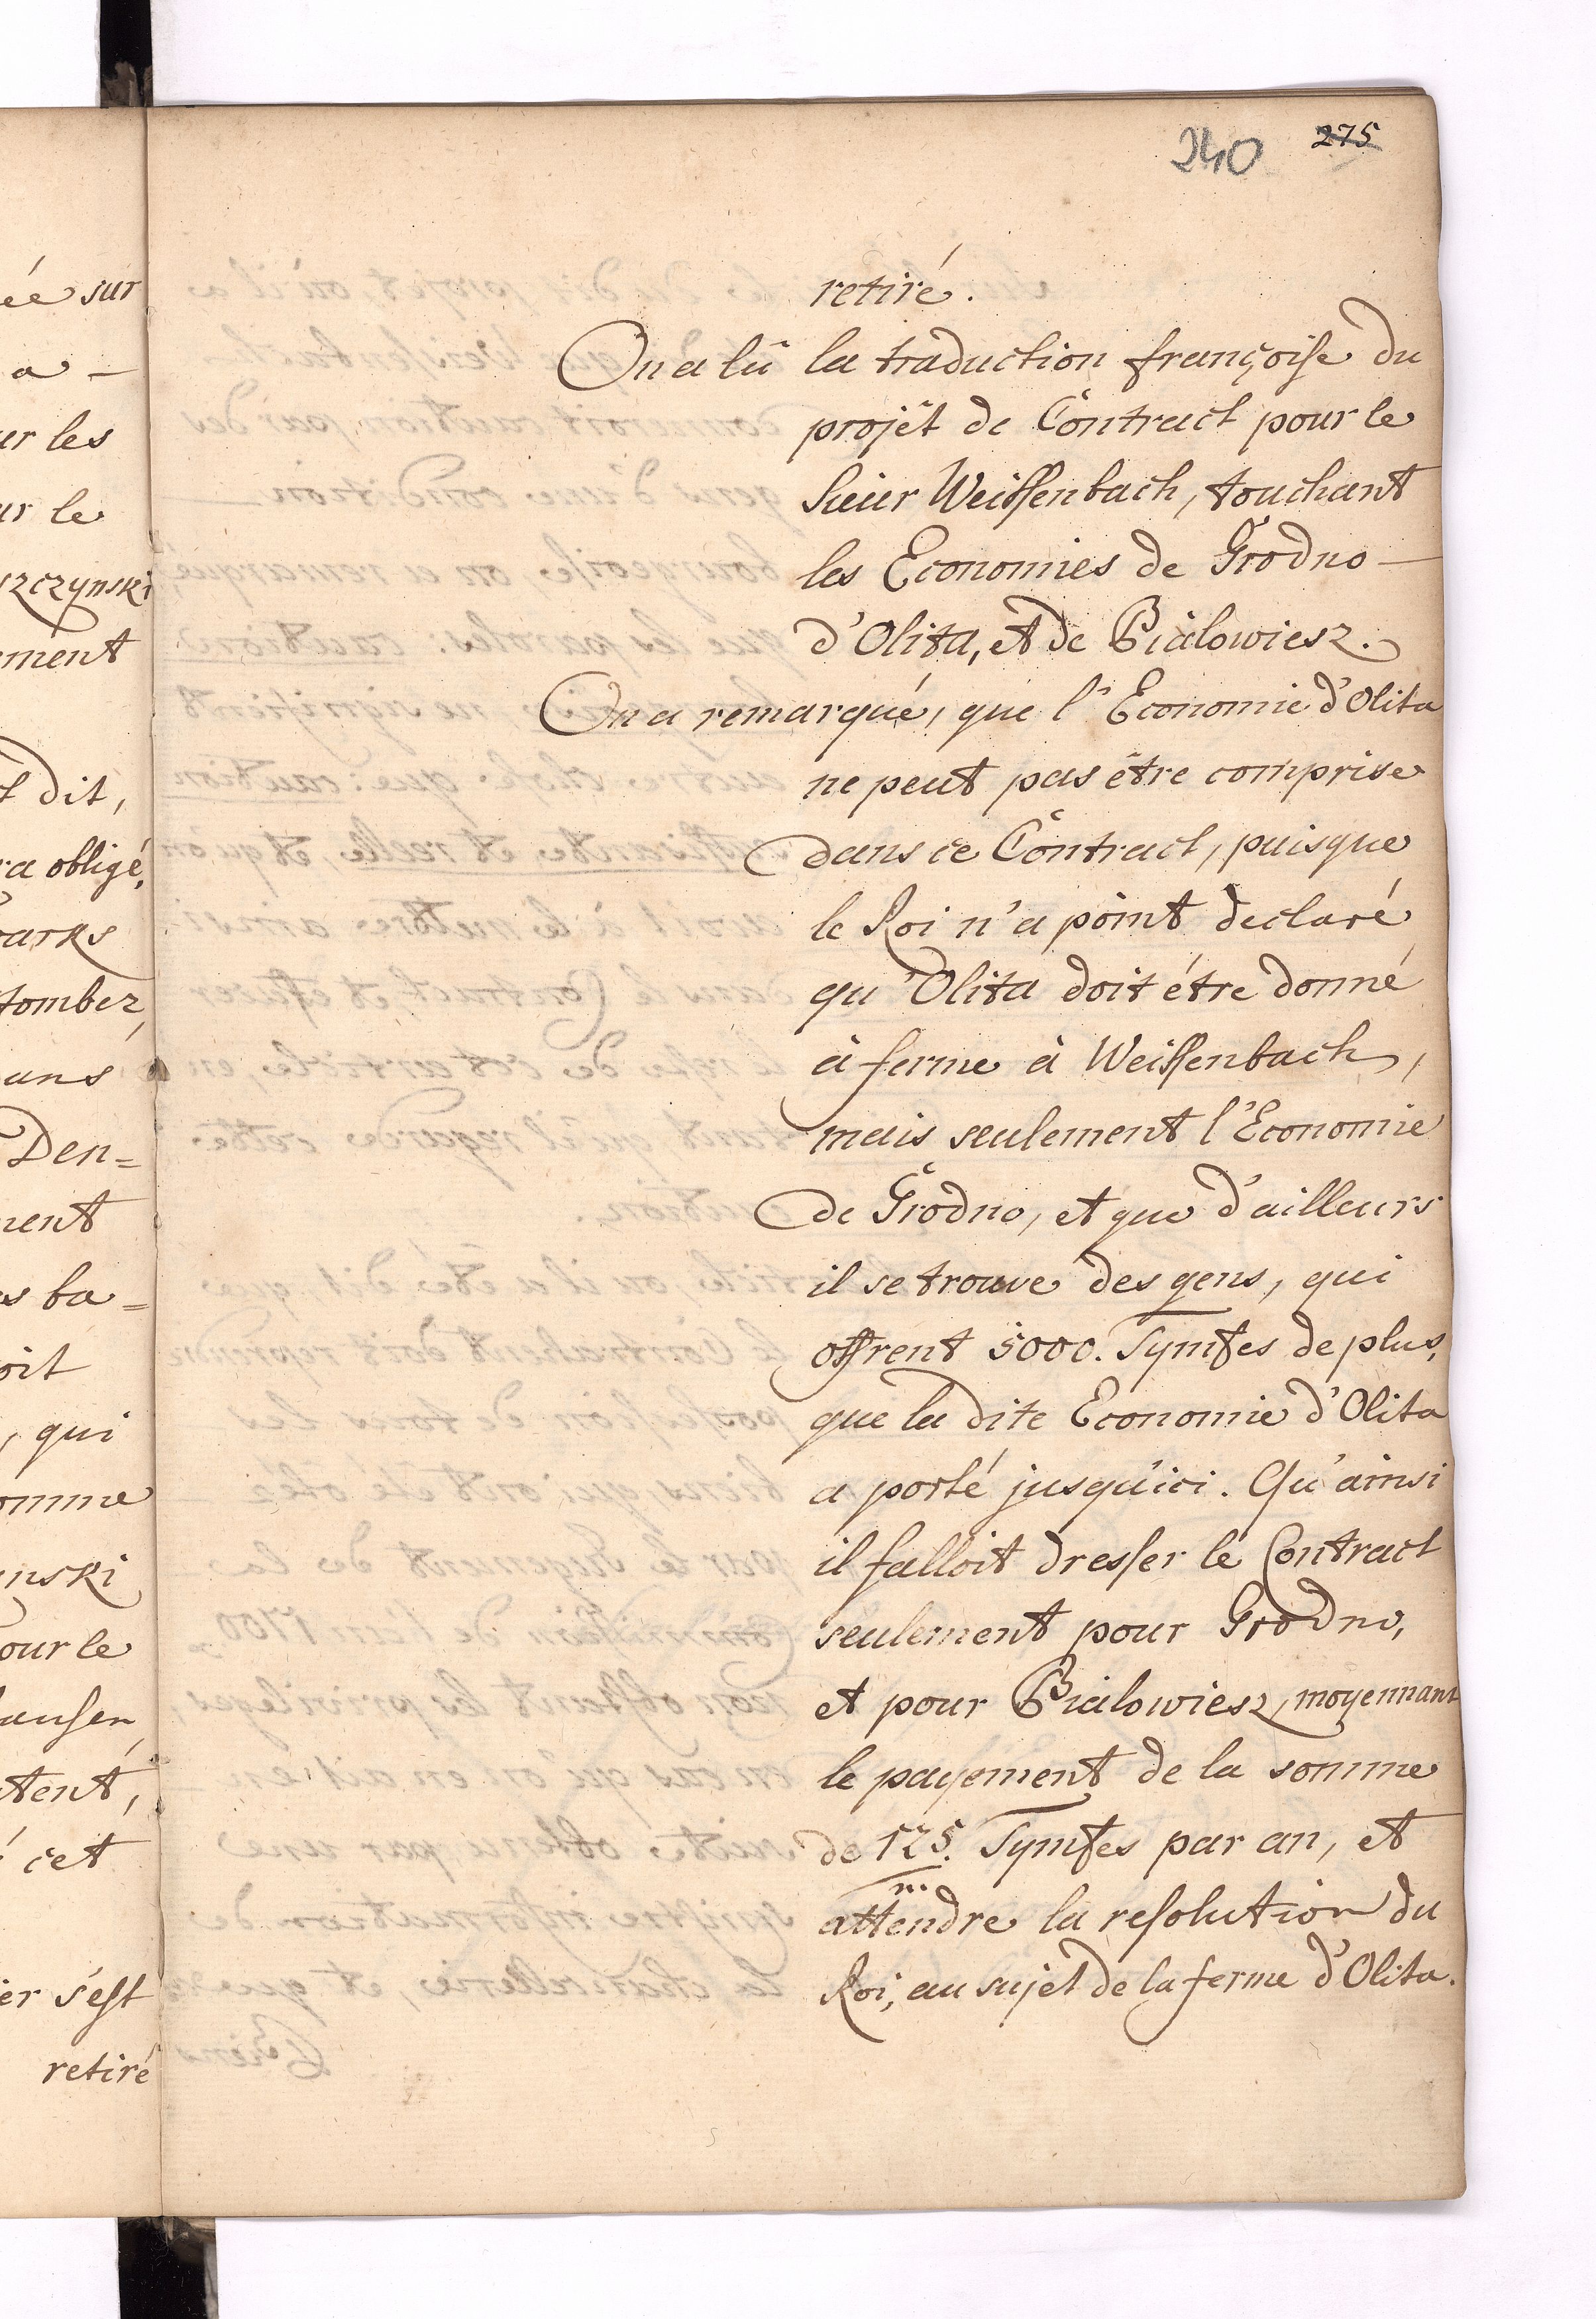 240 275
retiré.
On a lû la traduction françoise du
projêt de Contract pour le
Sieur Weissenbach, touchant
les Economies de Grodno —
d'Olita, et de Bialowiesz.
On a remarqué, que l'Economie d'Olita
ne peut pas être comprise
dans ce Contract, puisque
le Roi n'a point declaré
qu'Olita doit étre donné
à ferme à Weissenbach,
mais seulement l'Economie
de Grodno, et que d'ailleurs
il se trouve des gens, qui
offrent 5000. Tymfes de plus,
que la dite Economie d'Olita
a porté jusqu'ici. Qu'ainsi
il falloit dresser le Contract
seulement pour Grodno,
et pour Bialowiesz, moyennant
le payement de la somme
de 125. Tymfes par an, et
m.
attendre la resolution du
Roi, au sujet de la ferme d'Olita.
ée sur
a —
ur les
ur le
szczynski
ement
t dit,
ra obligé,
arks
tombez,
ans
Den=
ment
s ba=
oit
, qui
omme
nski
our le
ausen
tent,
cet
er s'est
retiré